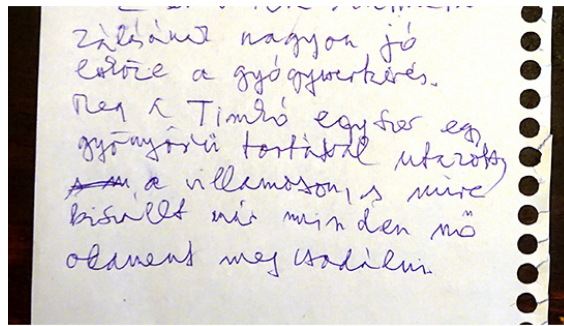 zálásának nagyon jó
eszköze a gyógyszerkérés.
Meg a Timkó egyszer egy
gyönyörű tortával utazott
a villamoson, s mire
kiszállt már minden nő
odament megcsodálni.